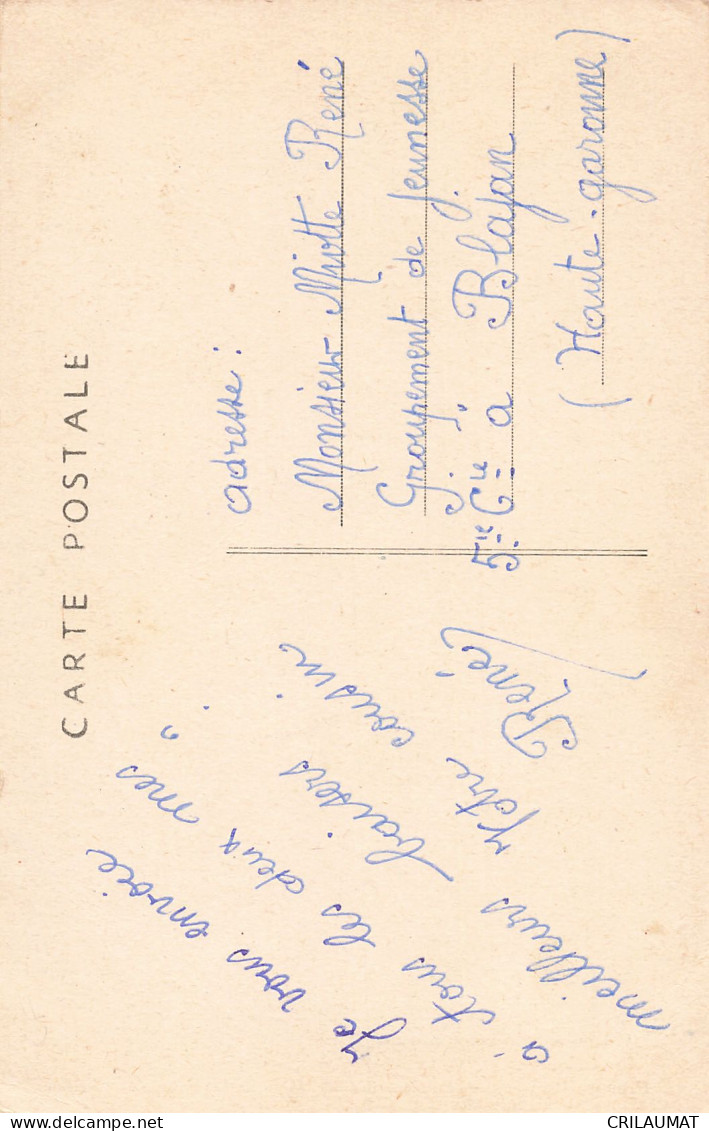 CARTE POSTALE
Je vous envoie
à tous les deux mes
meilleurs baisers
Vôtre cousin
René
adresse :
Monsieur Miotte René
Groupement de Jeunesse
5ie Cie à Blajan
(Haute-garonne)
CRILAUMAT